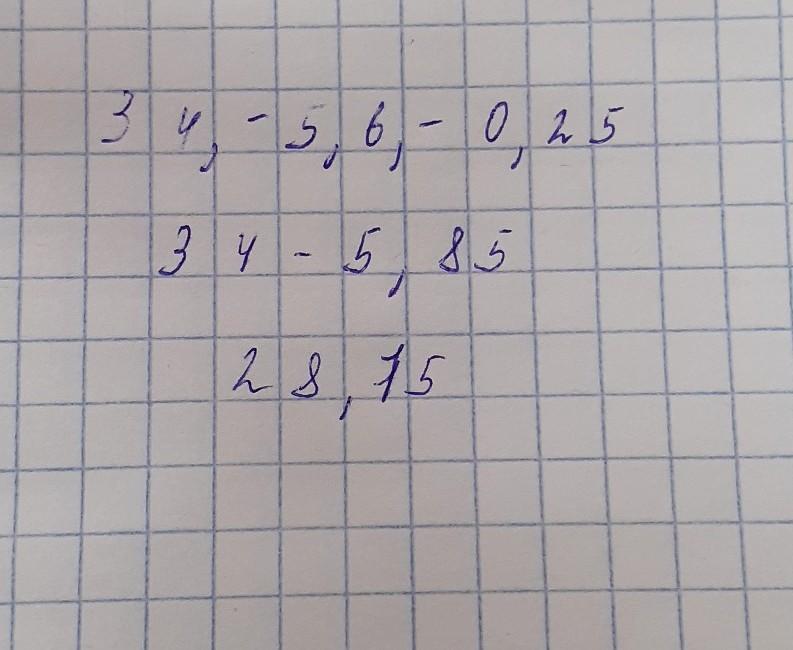 34,-5,6,-0,25
34-5,85
28,15